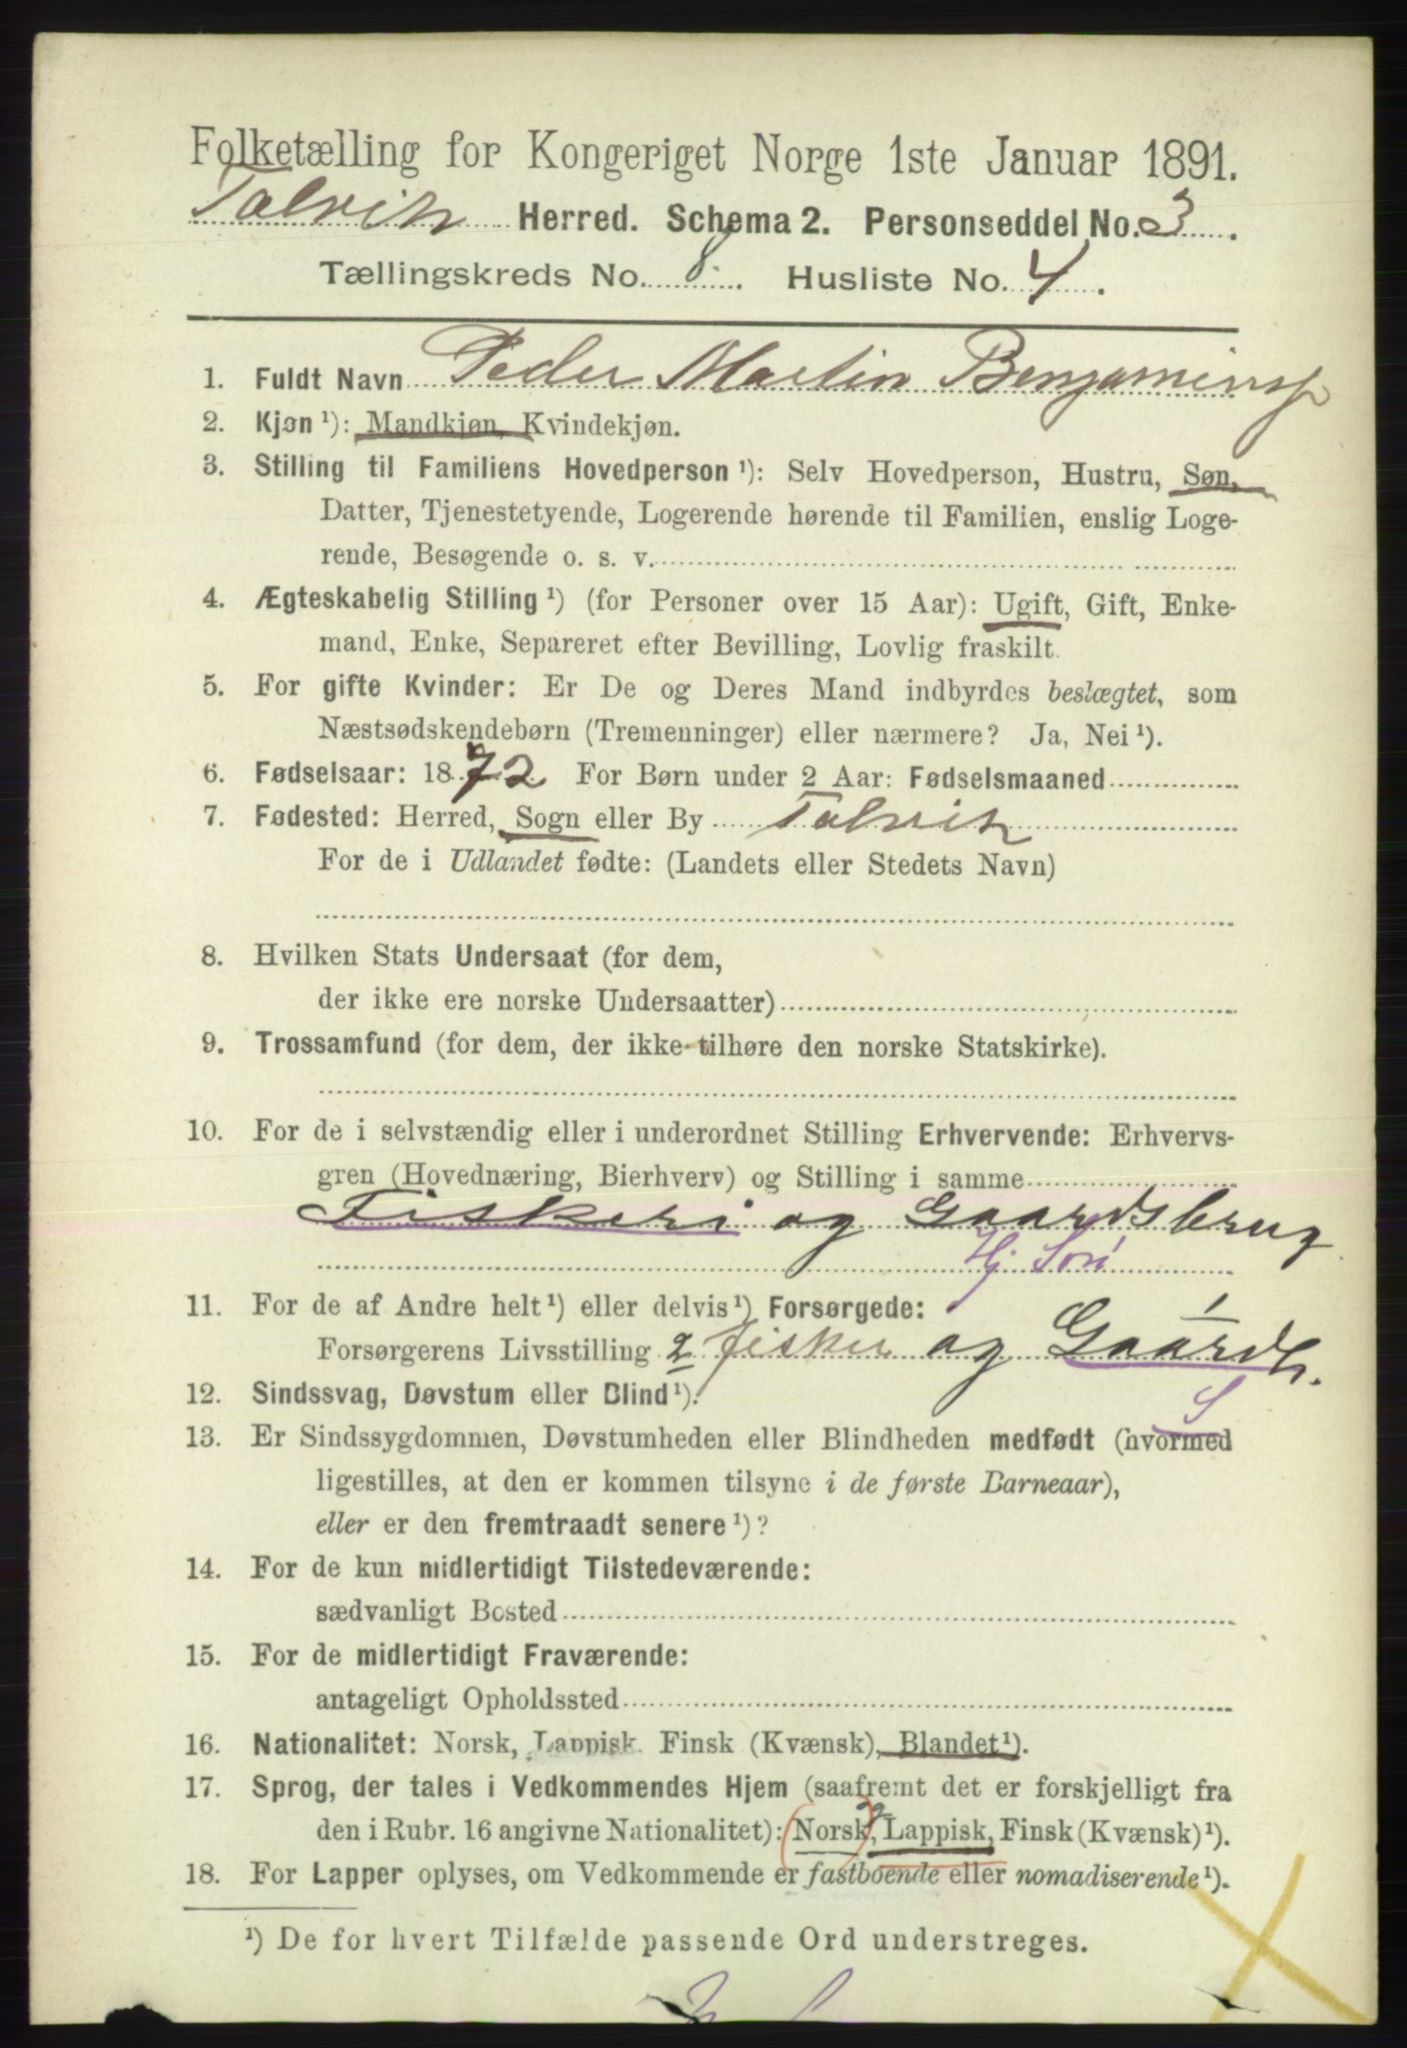 Folketælling for Kongeriget Norge 1ste Januar 1891.
Talvik Herred. Schema 2. Personseddel No. 3.
Tællingskreds No. 8. Husliste No. 4.
1. Fuldt Navn Peder Martin Benjamins
2. Kjøn ¹): Mandkjøn, Kvindekjøn.
3. Stilling til Familiens Hovedperson ¹): Selv Hovedperson, Hustru, Søn,
Datter, Tjenestetyende, Logerende hørende til Familien, enslig Loge-
rende, Besøgende o. s. v.
4. Ægteskabelig Stilling ¹) (for Personer over 15 Aar): Ugift, Gift, Enke-
mand, Enke, Separeret efter Bevilling, Lovlig fraskilt.
5. For gifte Kvinder: Er De og Deres Mand indbyrdes beslægtet, som
Næstsødskendebørn (Tremenninger) eller nærmere? Ja, Nei ¹).
6. Fødselsaar: 1872 For Børn under 2 Aar: Fødselsmaaned
7. Fødested: Herred, Sogn eller By Talvik
For de i Udlandet fødte: (Landets eller Stedets Navn)
8. Hvilken Stats Undersaat (for dem,
der ikke ere norske Undersaatter)
9. Trossamfund (for dem, der ikke tilhøre den norske Statskirke).
10. For de i selvstændig eller i underordnet Stilling Erhvervende: Erhvervs-
gren (Hovednæring, Bierhverv) og Stilling i samme
Fiskeri og Gaardsbrug
Hj
11. For de af Andre helt ¹) eller delvis ¹) Forsørgede:
Forsørgerens Livsstilling fisker og Gaardb.
12. Sindssvag, Døvstum eller Blind ¹).
S
13. Er Sindssygdommen, Døvstumheden eller Blindheden medfødt (hvormed
ligestilles, at den er kommen tilsyne i de første Barneaar),
eller er den fremtraadt senere ¹)?
14. For de kun midlertidigt Tilstedeværende:
sædvanligt Bosted
15. For de midlertidigt Fraværende:
antageligt Opholdssted
16. Nationalitet: Norsk, Lappisk, Finsk (Kvænsk), Blandet ¹).
17. Sprog, der tales i Vedkommendes Hjem (saafremt det er forskjelligt fra
den i Rubr. 16 angivne Nationalitet): Norsk, og Lappisk, Finsk (Kvænsk) ¹).
18. For Lapper oplyses, om Vedkommende er fastboende eller nomadiserende ¹).
¹) De for hvert Tilfælde passende Ord understreges.